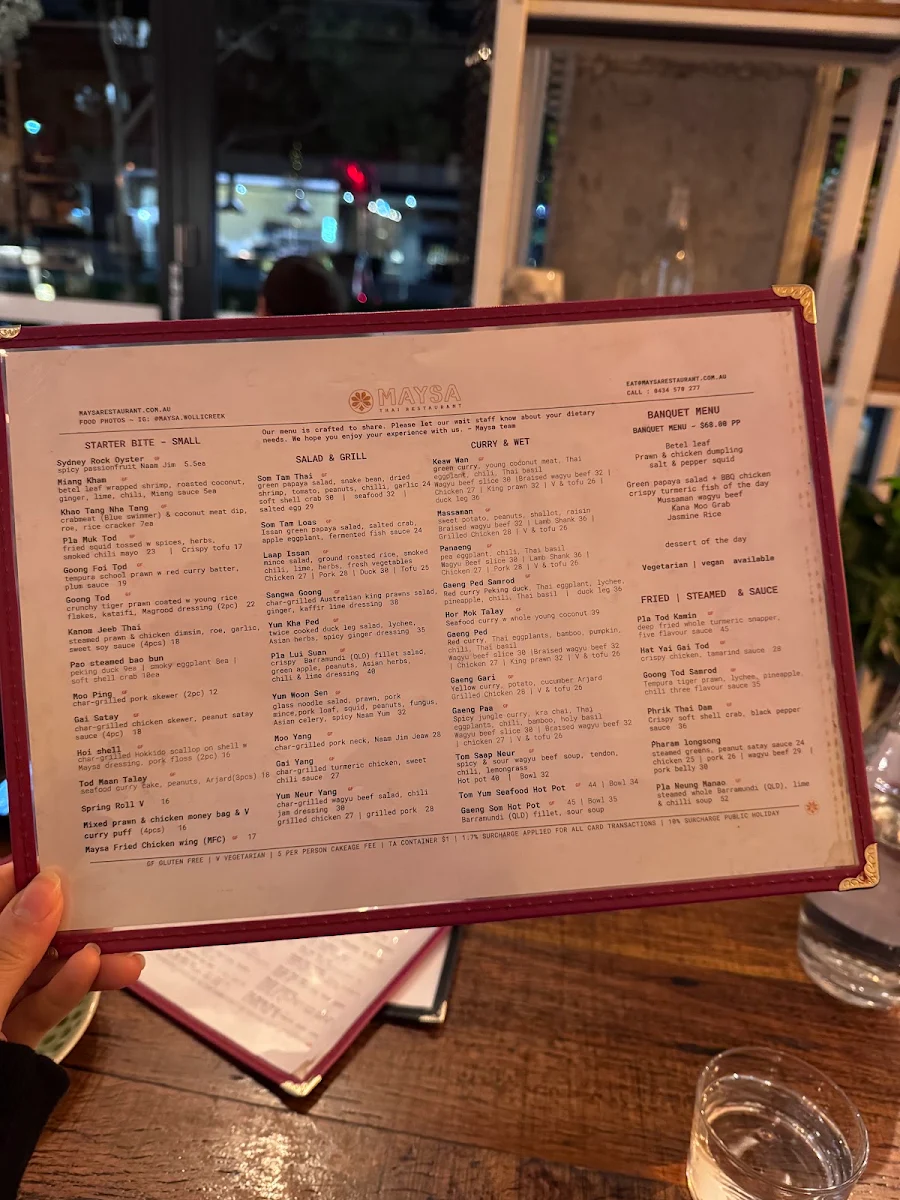 MAYSARESTAURANT.COM.AU
FOOD PHOTOS - IG: @MAYSA.WOLLICREEK
MAYSA
THAI RESTAURANT
EAT@MAYSARESTAURANT.COM.AU
CALL : 0434 578 277
Our menu is crafted to share. Please let our wait staff know about your dietary
needs. We hope you enjoy your experience with us. - Maysa team
STARTER BITE - SMALL
Sydney Rock Oyster GF
spicy passionfruit Naam Jim 5.5ea
Miang Kham GF
betel leaf wrapped shrimp, roasted coconut,
ginger, lime, chili, Miang sauce 5ea
Khao Tang Nha Tang GF
crabmeat (Blue swimmer) & coconut meat dip,
roe, rice cracker 7ea
Pla Muk Tod GF
fried squid tossed w spices, herbs,
smoked chili mayo 23 | Crispy tofu 17
Goong Foi Tod GF
tempura school prawn w red curry batter,
plum sauce 19
Goong Tod
crunchy tiger prawn coated w young rice
flakes, kataifi, Magrood dressing (2pc) 22
Kanom Jeeb Thai
steamed prawn & chicken dimsim, roe, garlic,
sweet soy sauce (4pc) 18
Pao steamed bao bun
peking duck 9ea | smoky eggplant 8ea |
soft shell crab 10ea
Moo Ping GF
char-grilled pork skewer (2pc) 12
Gai Satay GF
char-grilled chicken skewer, peanut satay
sauce (4pc) 18
Hoi shell GF
char-grilled Hokkido scallop on shell w
Maysa dressing, pork floss (2pc) 16
Tod Maan Talay GF
seafood curry cake, peanuts, Arjard(3pcs) 18
Spring Roll V 16
Mixed prawn & chicken money bag & V
curry puff (4pcs) 16
Maysa Fried Chicken wing (MFC) GF 17
SALAD & GRILL
Som Tam Thai GF
green papaya salad, snake bean, dried
shrimp, tomato, peanuts, chilli, garlic 24
soft shell crab 30 | seafood 32 |
salted egg 29
Som Tam Loas GF
Issan green papaya salad, salted crab,
apple eggplant, fermented fish sauce 24
Laap Issan GF
mince salad, ground roasted rice, smoked
chili, lime, herbs, fresh vegetables
Chicken 27 | Pork 28 | Duck 30 | Tofu 25
Sangwa Goong GF
char-grilled Australian king prawns salad,
ginger, kaffir lime dressing 38
Yum Kha Ped GF
twice cooked duck leg salad, lychee,
Asian herbs, spicy ginger dressing 35
Pla Lui Suan GF
crispy Barramundi (QLD) fillet salad,
green apple, peanuts, Asian herbs,
chili & lime dressing 40
Yum Woon Sen GF
glass noodle salad, prawn, pork
mince,pork loaf, squid, peanuts, fungus,
Asian celery, spicy Naam Yum 32
Moo Yang GF
char-grilled pork neck, Naam Jim Jeaw 28
Gai Yang GF
char-grilled turmeric chicken, sweet
chili sauce 27
Yum Neur Yang GF
char-grilled wagyu beef salad, chili
jam dressing 30
grilled chicken 27 | grilled pork 28
CURRY & WET
Keaw Wan GF
green curry, young coconut meat. Thai
eggplant, chili, Thai basil
Wagyu beef slice 30 |Braised wagyu beef 32 |
Chicken 27 | King prawn 32 | V & tofu 26 |
duck leg 36
Massaman GF
sweet potato, peanuts, shallot, raisin
Braised wagyu beef 32 | Lamb Shank 36 |
Grilled Chicken 28 | V & tofu 26
Panaeng GF
pea eggplant, chili, Thai basil
Wagyu Beef slice 30 |Lamb Shank 36 |
Chicken 27 | Pork 28 | V & tofu 26
Gaeng Ped Samrod GF
Red curry Peking duck. Thai eggplant, lychee,
pineapple, chili, Thai basil | duck leg 36
Hor Mok Talay GF
Seafood curry w whole young coconut 39
Gaeng Ped GF
Red curry, Thai eggplants, bamboo, pumpkin,
chili, Thai basil
Wagyu beef slice 30 |Braised wagyu beef 32
| Chicken 27 | King prawn 32 | V & tofu 26
Gaeng Gari GF
Yellow curry, potato, cucumber Arjard
Grilled Chicken 28 | V & tofu 26
Gaeng Paa GF
Spicy jungle curry, kra chai, Thai
eggplants, chili, bamboo, holy basil
Wagyu beef slice 30 | Braised wagyu beef 32
| chicken 27 | V & tofu 26
Tom Saap Neur GF
spicy & sour wagyu beef soup, tendon,
chili, lemongrass
Hot pot 40 | Bowl 32
Tom Yum Seafood Hot Pot GF 44 | Bowl 34
Gaeng Som Hot Pot GF 45 | Bowl 35
Barramundi (QLD) fillet, sour soup
BANQUET MENU
BANQUET MENU - $68.00 PP
Betel leaf
Prawn & chicken dumpling
salt & pepper squid
Green papaya salad + BBQ chicken
crispy turmeric fish of the day
Mussaman wagyu beef
Kana Moo Grab
Jasmine Rice
dessert of the day
Vegetarian | vegan available
FRIED | STEAMED & SAUCE
Pla Tod Kamin GF
deep fried whole turmeric snapper,
five flavour sauce 45
Hat Yai Gai Tod
crispy chicken, tamarind sauce 28
Goong Tod Samrod GF
Tempura tiger prawn, lychee, pineapple,
chili three flavour sauce 35
Phrik Thai Dam GF
Crispy soft shell crab, black pepper
sauce 36
Pharam longsong
steamed greens, peanut satay sauce 24
chicken 25 | pork 26 | wagyu beef 29 |
pork belly 30
Pla Neung Manao GF
steamed whole Barramundi (QLD), lime
& chilli soup 52
GF GLUTEN FREE | V VEGETARIAN | 5 PER PERSON CAKEAGE FEE | TA CONTAINER $1 | 1.7% SURCHARGE APPLIED FOR ALL CARD TRANSACTIONS | 10% SURCHARGE PUBLIC HOLIDAY